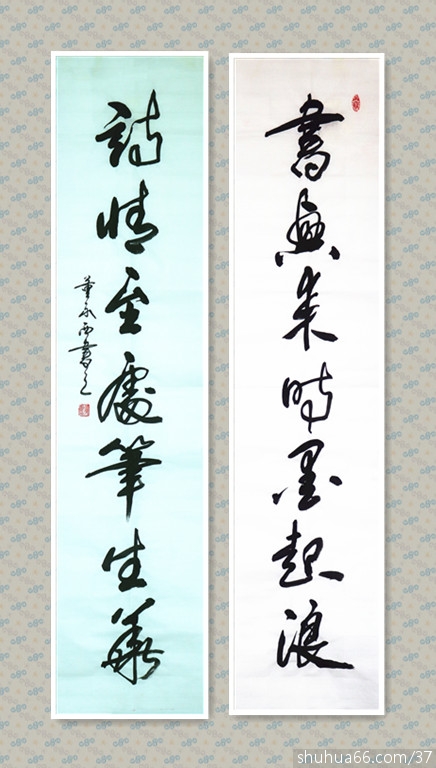 書興来時墨起浪
詩情至處筆生華
董永西書之
shuhua66.com/37